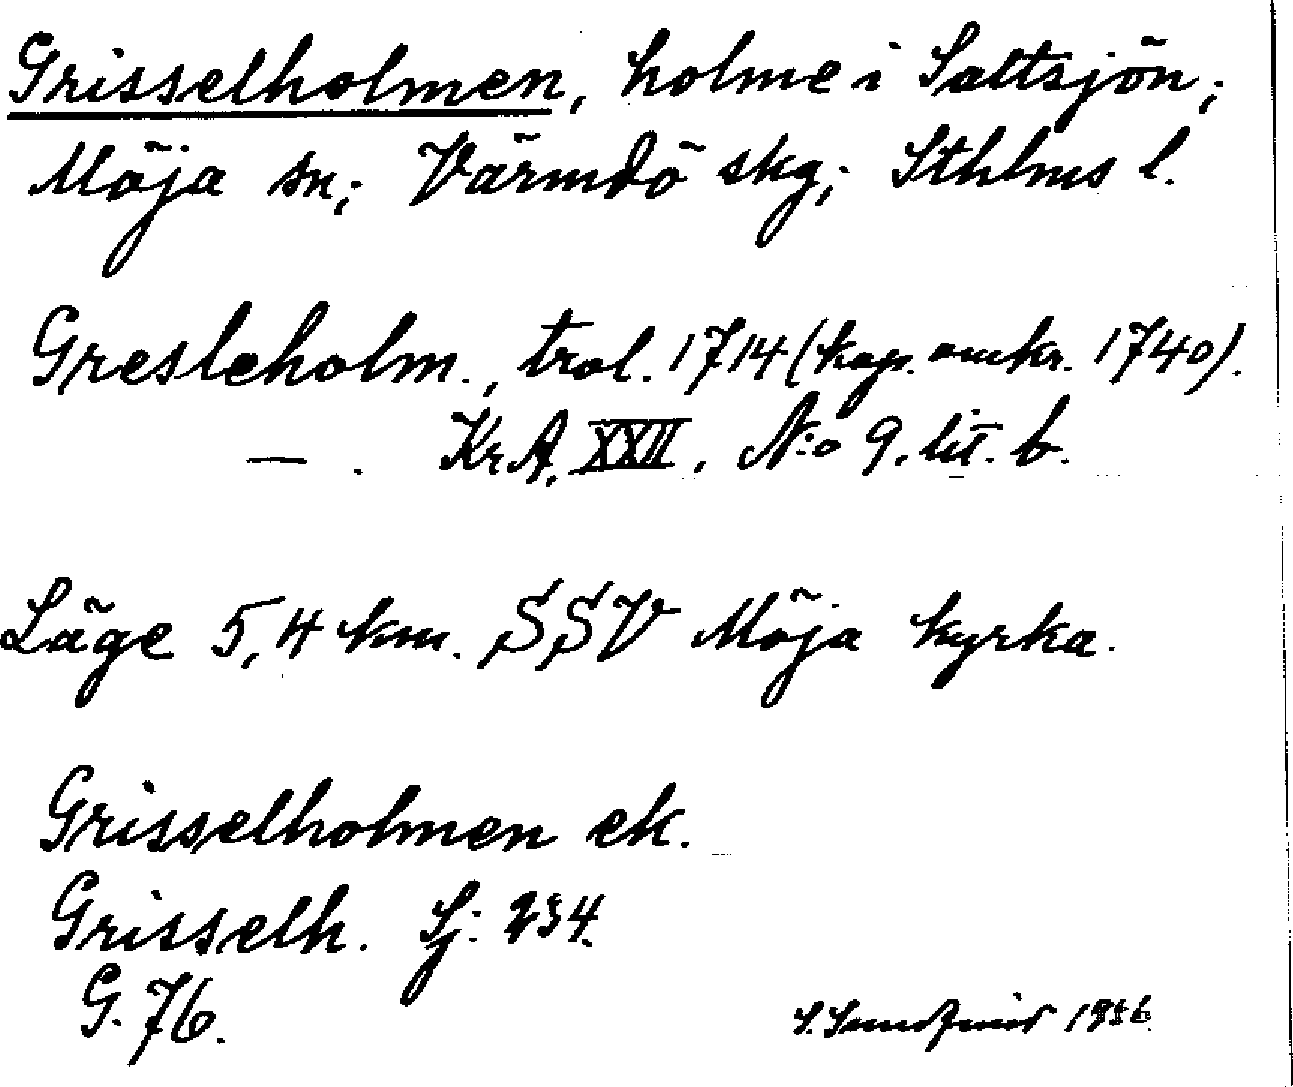 Grisselholmen, holme i Saltsjön;
Möja sn; Värmdö skg; Sthlms l.
Gresleholm., trol. 1714 (kop. omkr. 1740).
— . Kr.A. XXII. N:o 9. lit. b.
Läge 5,4 km. SSV Möja kyrka.
Grisselholmen ek.
Grisselh. Sj: 234.
G. 76.
S. 1936